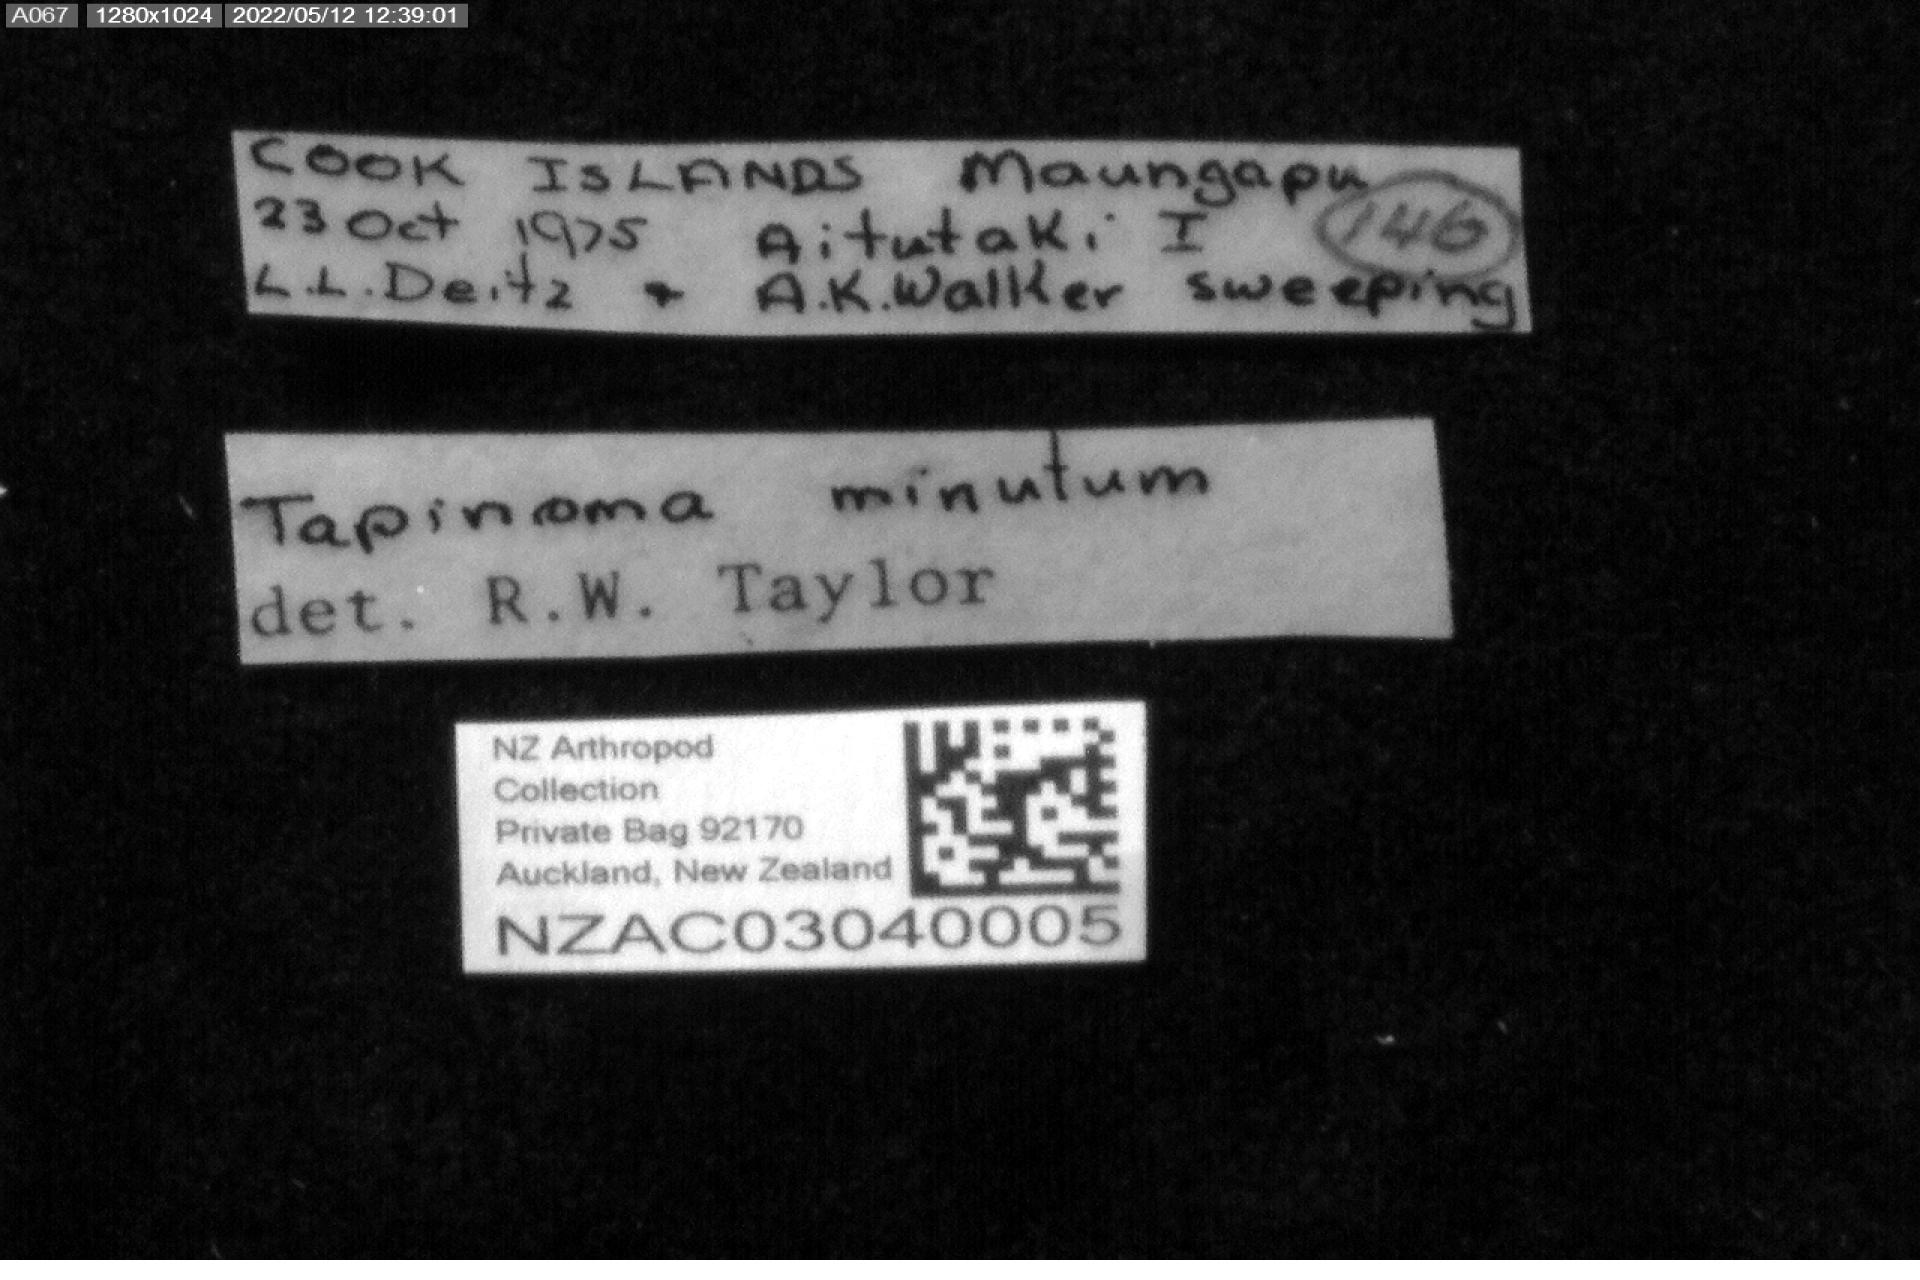 A067 1280x1024 2022/05/12 12:39:01
COOK ISLANDS Maungapu
23 Oct 1975 Aitutaki I 146
L.L.Deitz + A.K.Walker sweeping
Tapinoma minutum
det. R.W. Taylor
NZ Arthropod
Collection
Private Bag 92170
Auckland, New Zealand
NZAC03040005